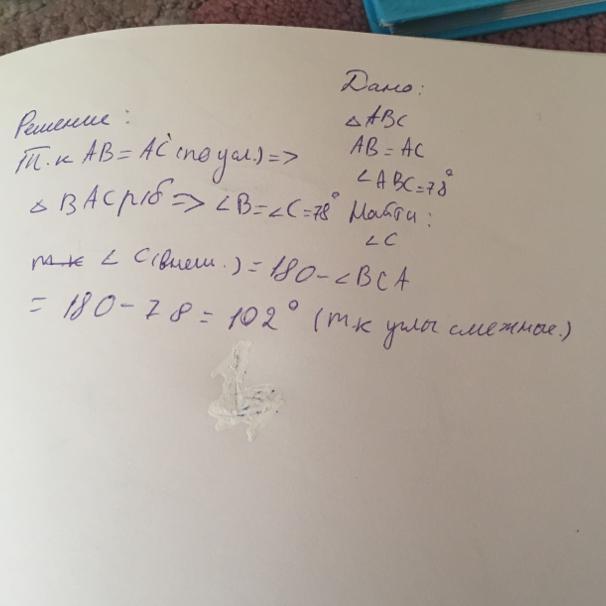 Дано:
△ABC
AB = AC
∠ABC=78°
Найти:
∠C
Решение:
Т.к AB = AC (по усл.) =>
△ BAC р/б => ∠B=∠C=78°
∠ C(внеш.) = 180-∠BCA
= 180-78 = 102° (тк углы смежные.)